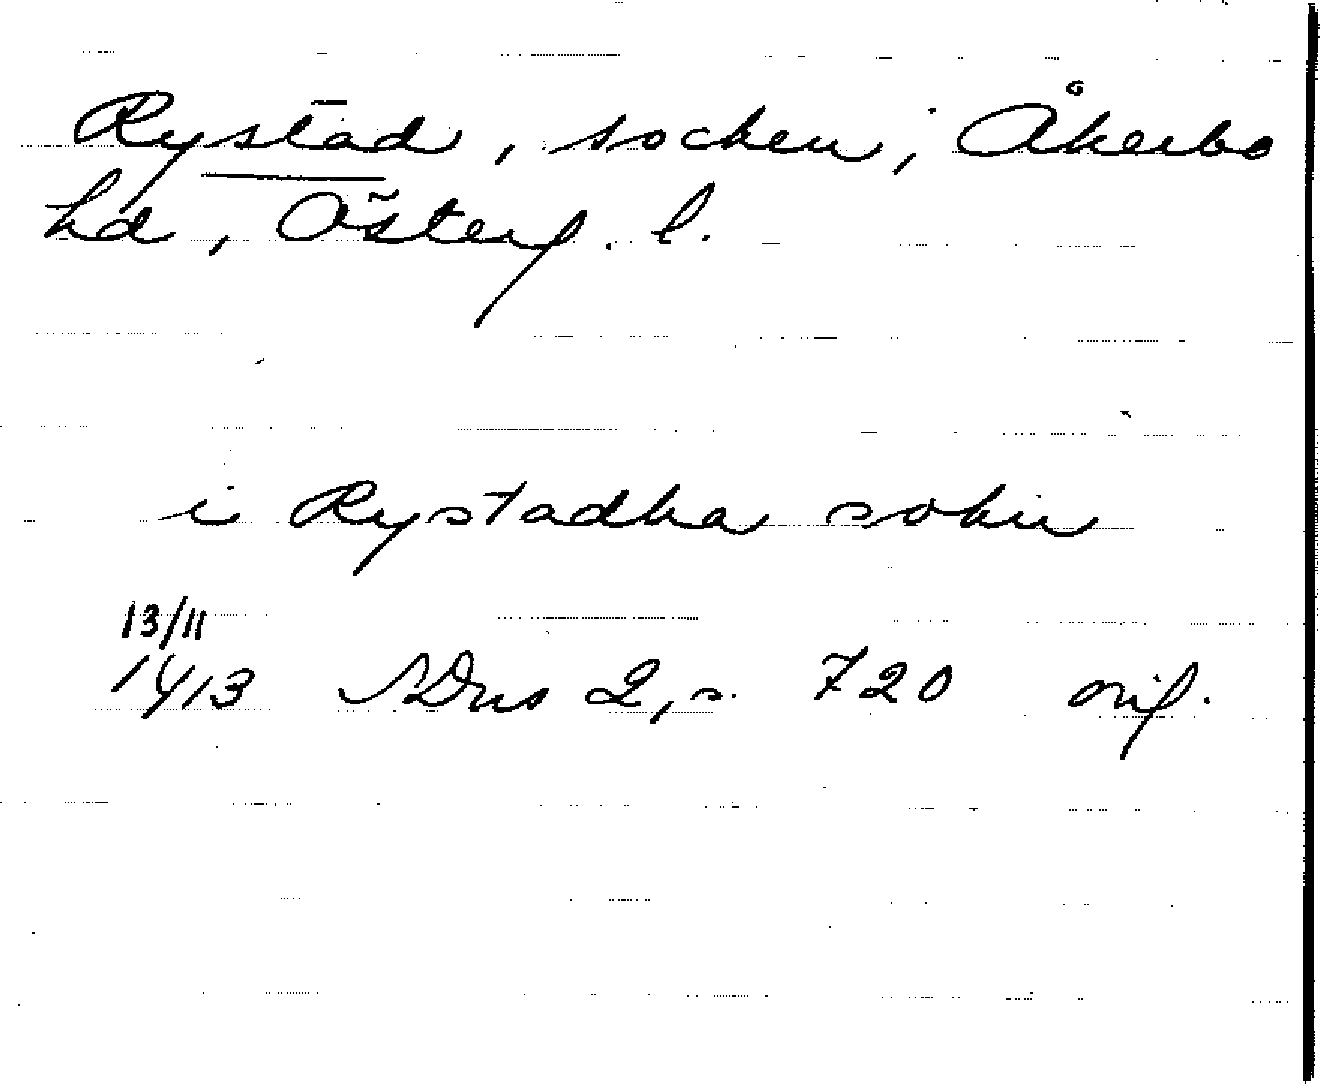 Rystad, socken, Åkerbo
hd, Österg. l.
i Rystadha sokn
13/11
1413 SDns 2, s. 720 orig.